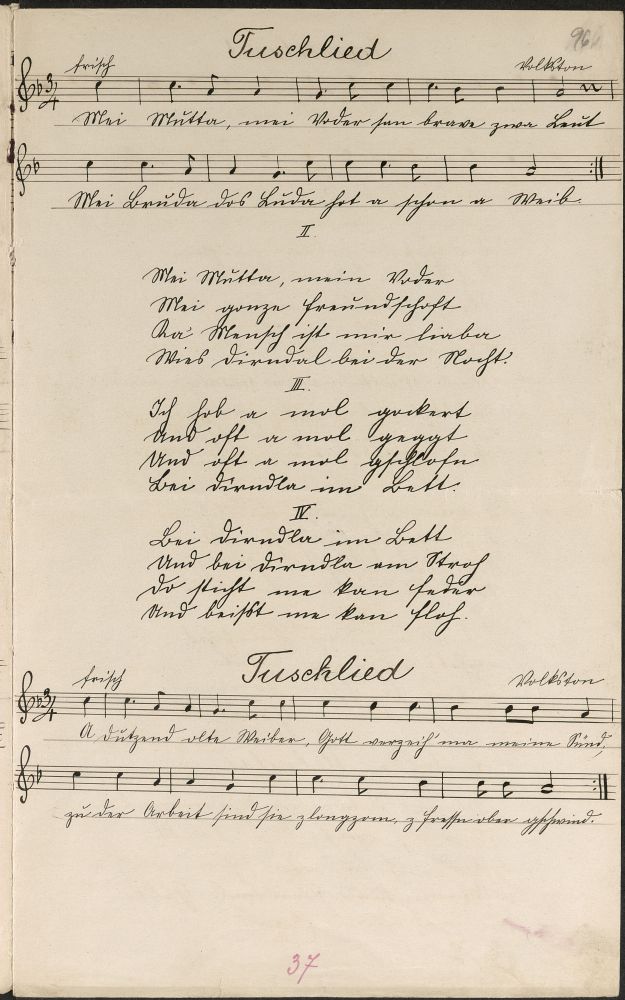 96
Tuschlied
frisch
Volkston
3/4
Mei Mutta, mei Voder san brave zwa Leut
Mei Bruda dos Luda hot a schon a Weib.
II.
Mei Mutta, mein Voder
Mei gonze Freundschoft
Ka Mensch ist mir liaba
Wies Dirndal bei der Nocht.
III.
Ich hob a mol gackert
Und oft a mol geggt
Und oft a mol gschlofn
Bei Dirndla im Bett.
IV.
Bei Dirndla im Bett
Und bei Dirndla am Stroh
Do sticht me kan Feder
Und beisst me kan Floh.
Tuschlied
frisch
Volkston
3/4
A Dutzend olte Weiber, Gott verzeih' ma meine Sünd,
zu der Arbeit sind sie zlongzom, z Fressn ober gschwind.
37